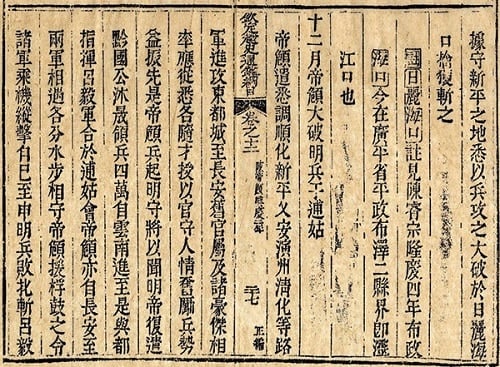 據守新平之地悉以兵攻之大破於日麗海
口擒獲斬之
日麗海口註見陳睿宗隆慶四年布政
海口今在廣平省平政布澤二縣界即
江口也
十二月帝頠大破明兵于逋姑
帝頠遣悉調順化新平乂安演州清化等路
欽定越史通鑑綱目 卷之十二 正編
軍進攻東都城至長安舊官屬及諸豪傑相
率應從悉各隨才授以官守人情奮勵兵勢
益振先是帝頠兵起明守將以聞明帝復遣
黔國公沐晟領兵四萬自雲南進至是與都
指揮呂毅軍合於逋姑會帝頠亦自長安至
兩軍相遇各分水步相守帝頠援枹鼓之令
諸軍乘機縱擊自巳至申明兵敗北斬呂毅